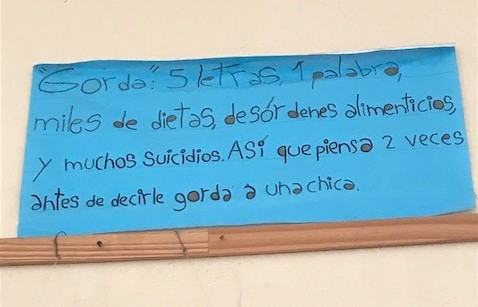 "Gorda": 5 letras, 1 palabra,
miles de dietas, desórdenes alimenticios,
y muchos suicidios. ASÍ que piensa 2 veces
antes de decirle gorda a una chica.